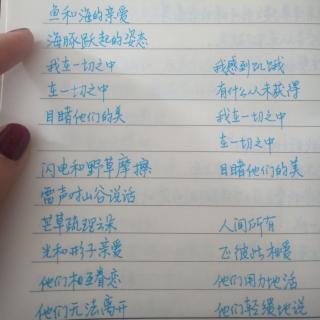 鱼和海的亲爱
海豚跃起的姿态
我在一切之中
在一切之中
目睹他们的美
闪电和野草摩擦
雷声对山谷说话
芒草疏理云朵
光和影子亲爱
他们相互眷恋
他们无法离开
我感到饥饿
有什么从未获得
我在一切之中
在一切之中
目睹他们的美
人间所有
飞彼此相爱
他们用力地活
他们轻缓地说